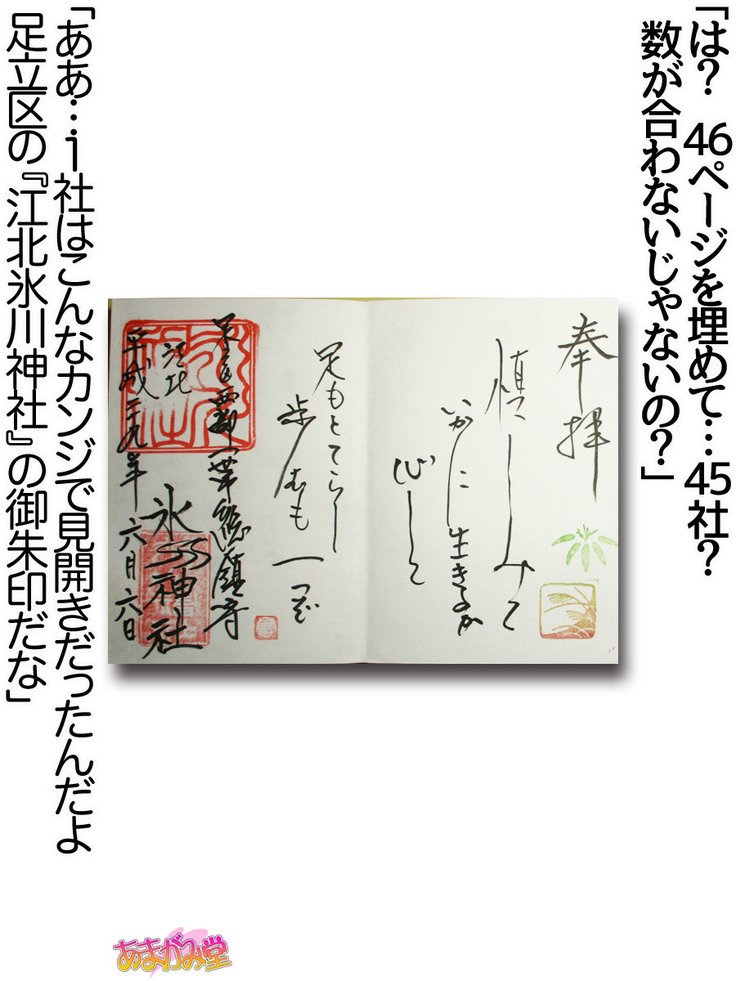 「は？　46ページを埋めて…45社？
数が合わないじゃないの？」
奉拝
慎しみて
いかに生きるか
心して
足もとてらし
歩むも一つぞ
江北
氷川神社
平成二十九年六月六日
「ああ…ｉ社はこんなカンジで見開きだったんだよ
足立区の『江北氷川神社』の御朱印だな」
あまがみ堂